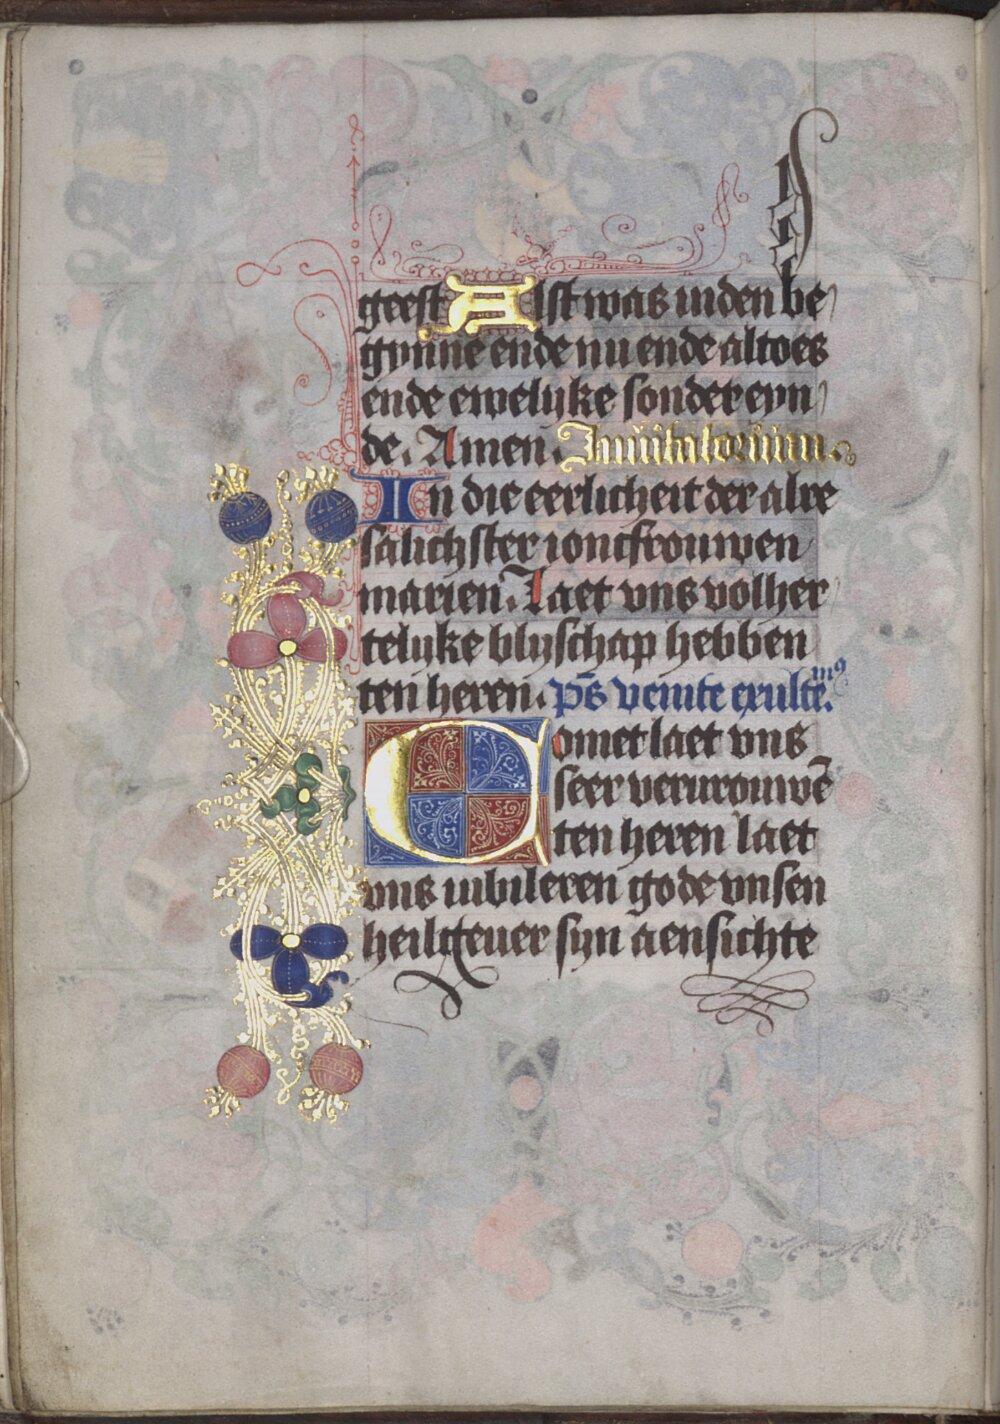 geest Alst was inden be
gynne ende nu ende altoes
ende ewelijke sonder eyn
de. Amen. Inuitatorium.
In die eerlicheit der alre
salichster ioncfrouwen
marien. Laet vns volher
telijke blijschap hebben
ten heren. ps̄ venite exulte.m9
Comet laet vns
seer vervrouwē
ten heren laet
vns iubileren gode vnsen
heilgeuer sijn aensichte